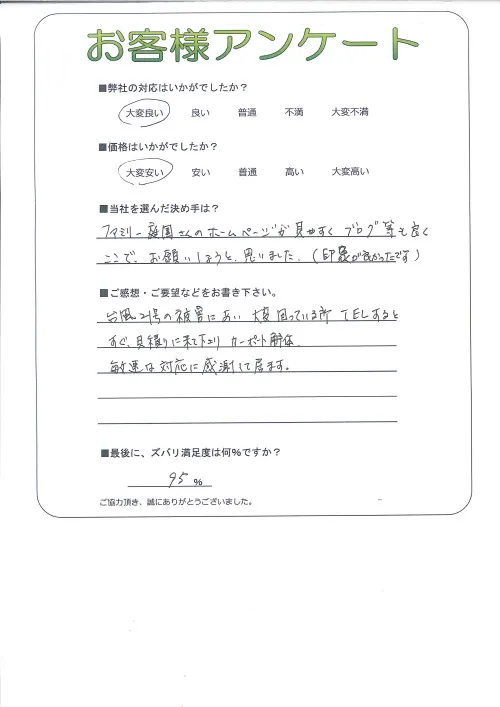 お客様アンケート
■弊社の対応はいかがでしたか？
大変良い 良い 普通 不満 大変不満
■価格はいかがでしたか？
大変安い 安い 普通 高い 大変高い
■当社を選んだ決め手は？
ファミリー庭園さんのホームページが見やすく ブログ等も良く
ここで、お願いしようと、思いました。（印象が良かったです）
■ご感想・ご要望などをお書き下さい。
台風21号の被害にあい 大変困っている所 TELすると
すぐ、見積りに来て下さり カーポート解体
敏速な対応に感謝して居ます。
■最後に、ズバリ満足度は何％ですか？
95 ％
ご協力頂き、誠にありがとうございました。